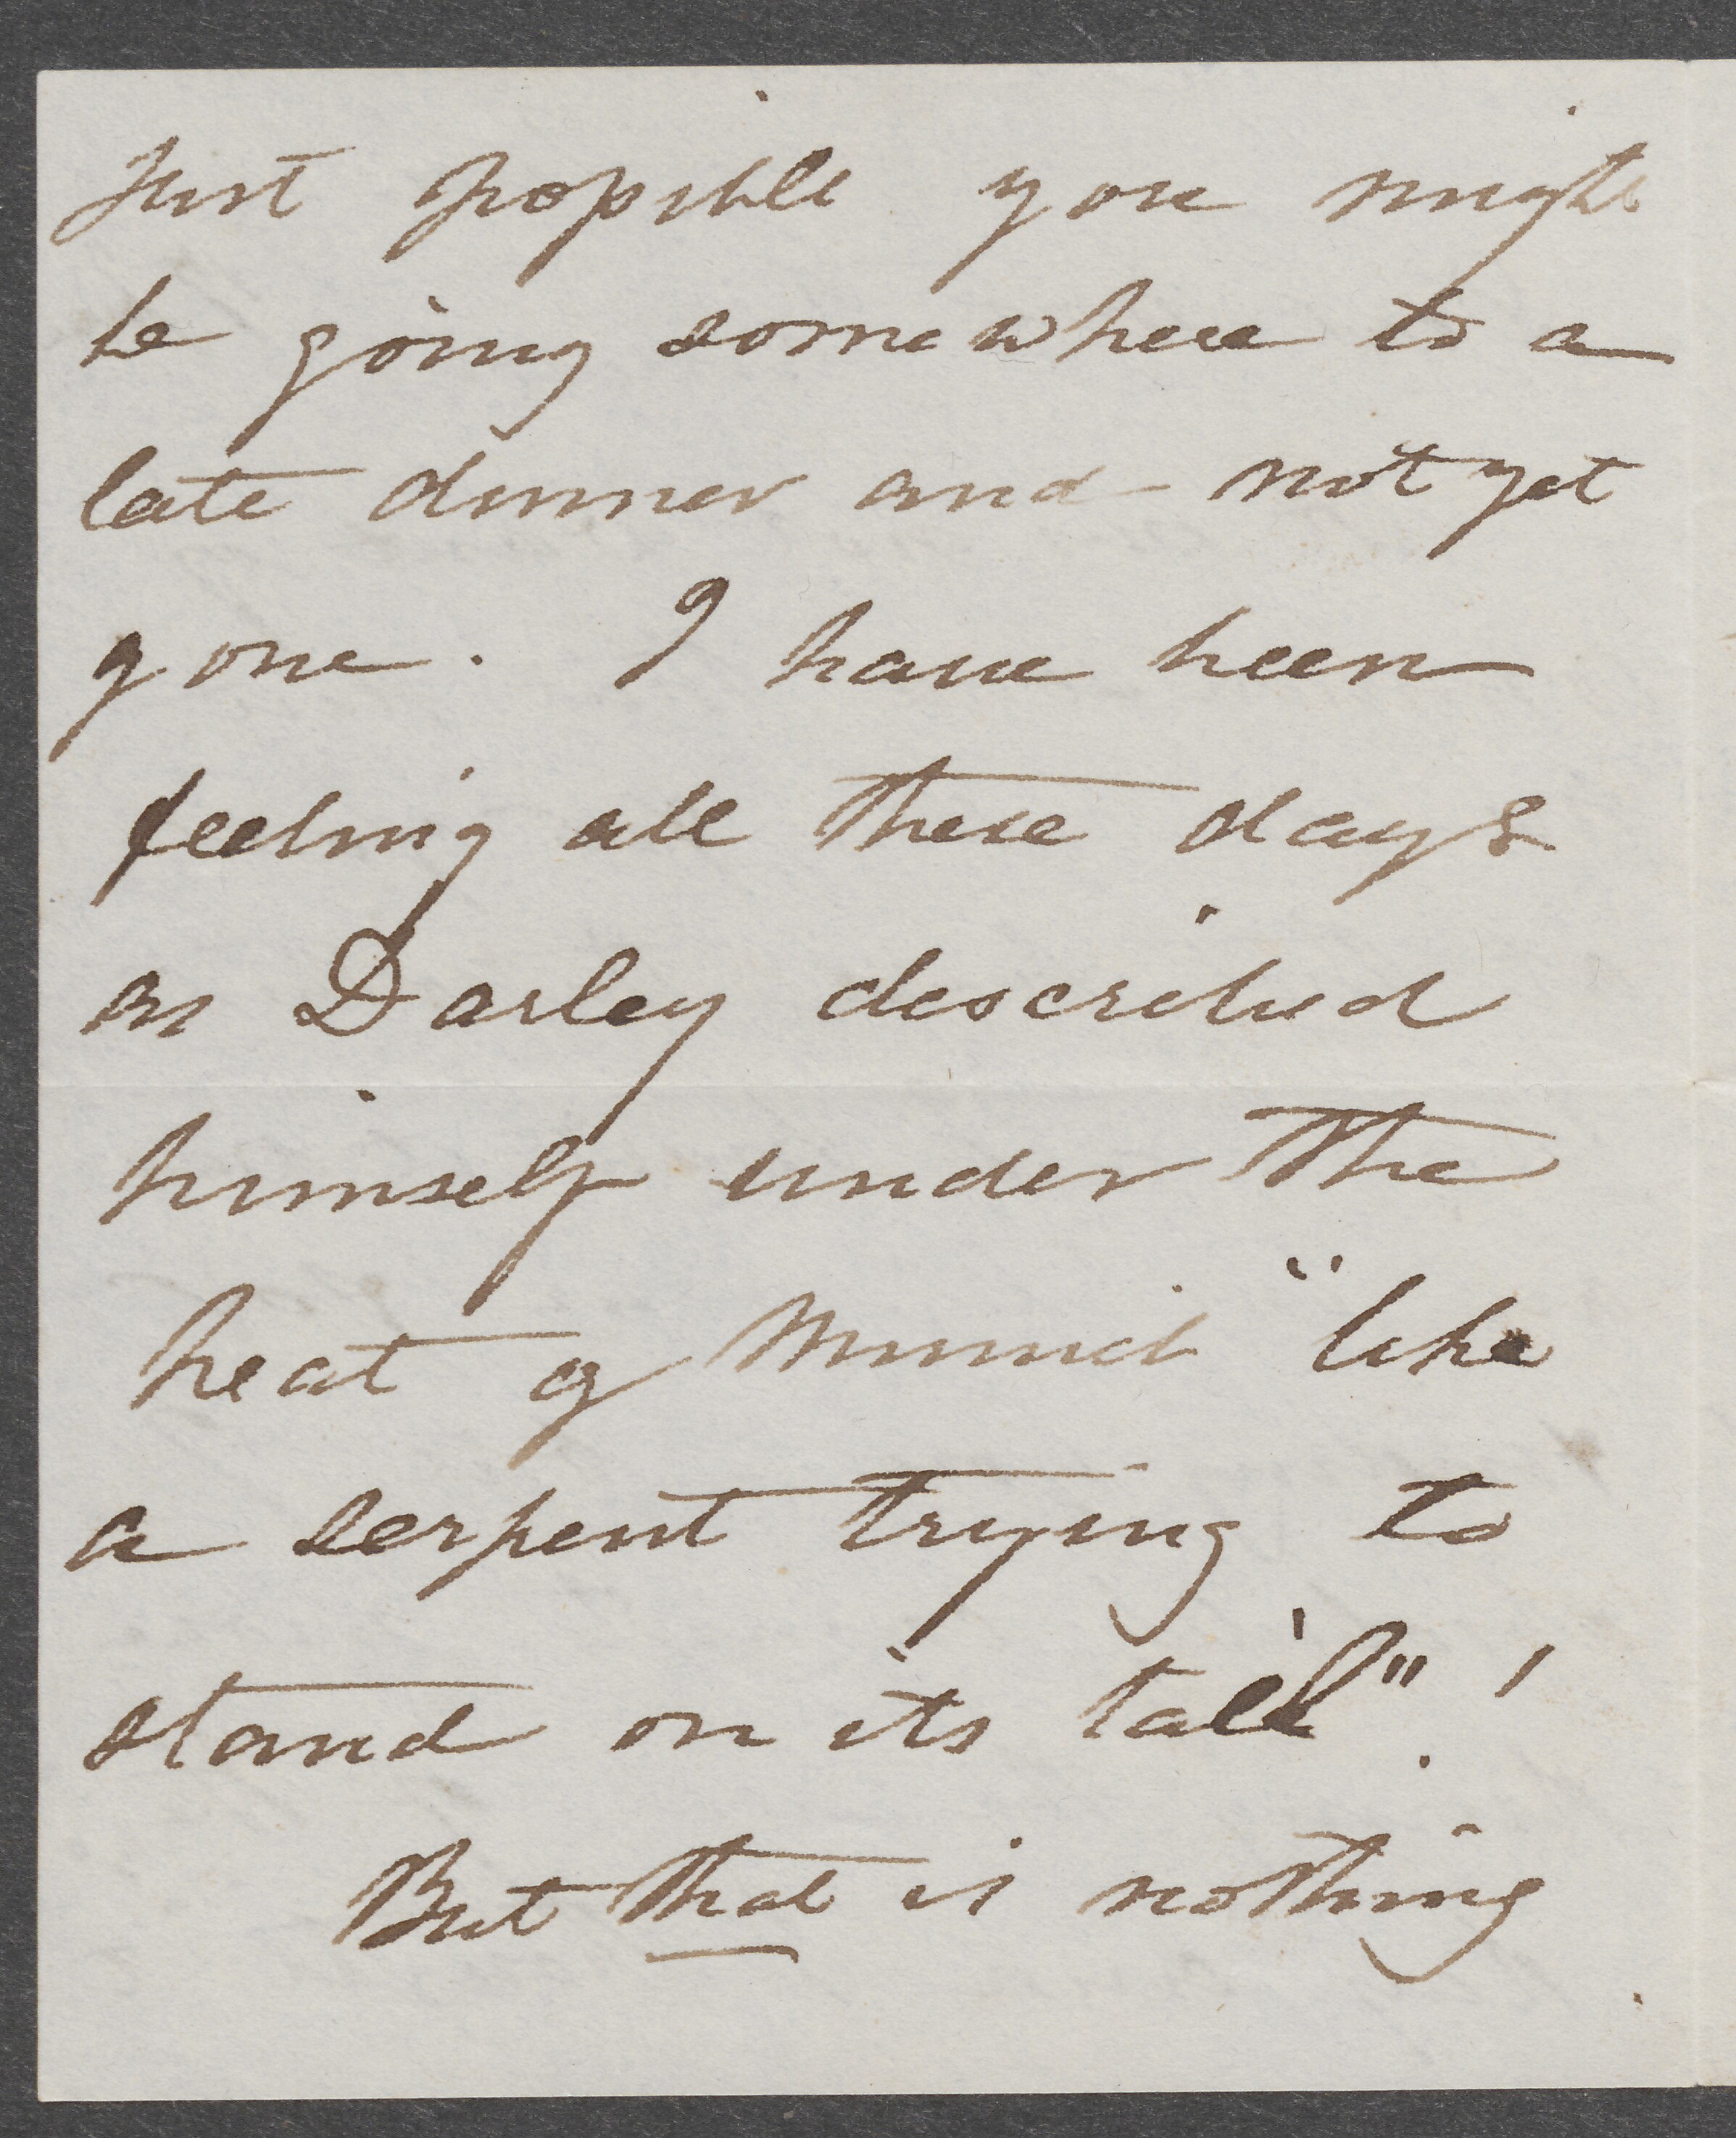 Just possible you might
be going somewhere to a
late dinner and not yet
gone. I have been
feeling all these days
as Darley described
himself under the
heat of Munich "like
a serpent trying to
stand on its tail"!
But that is nothing